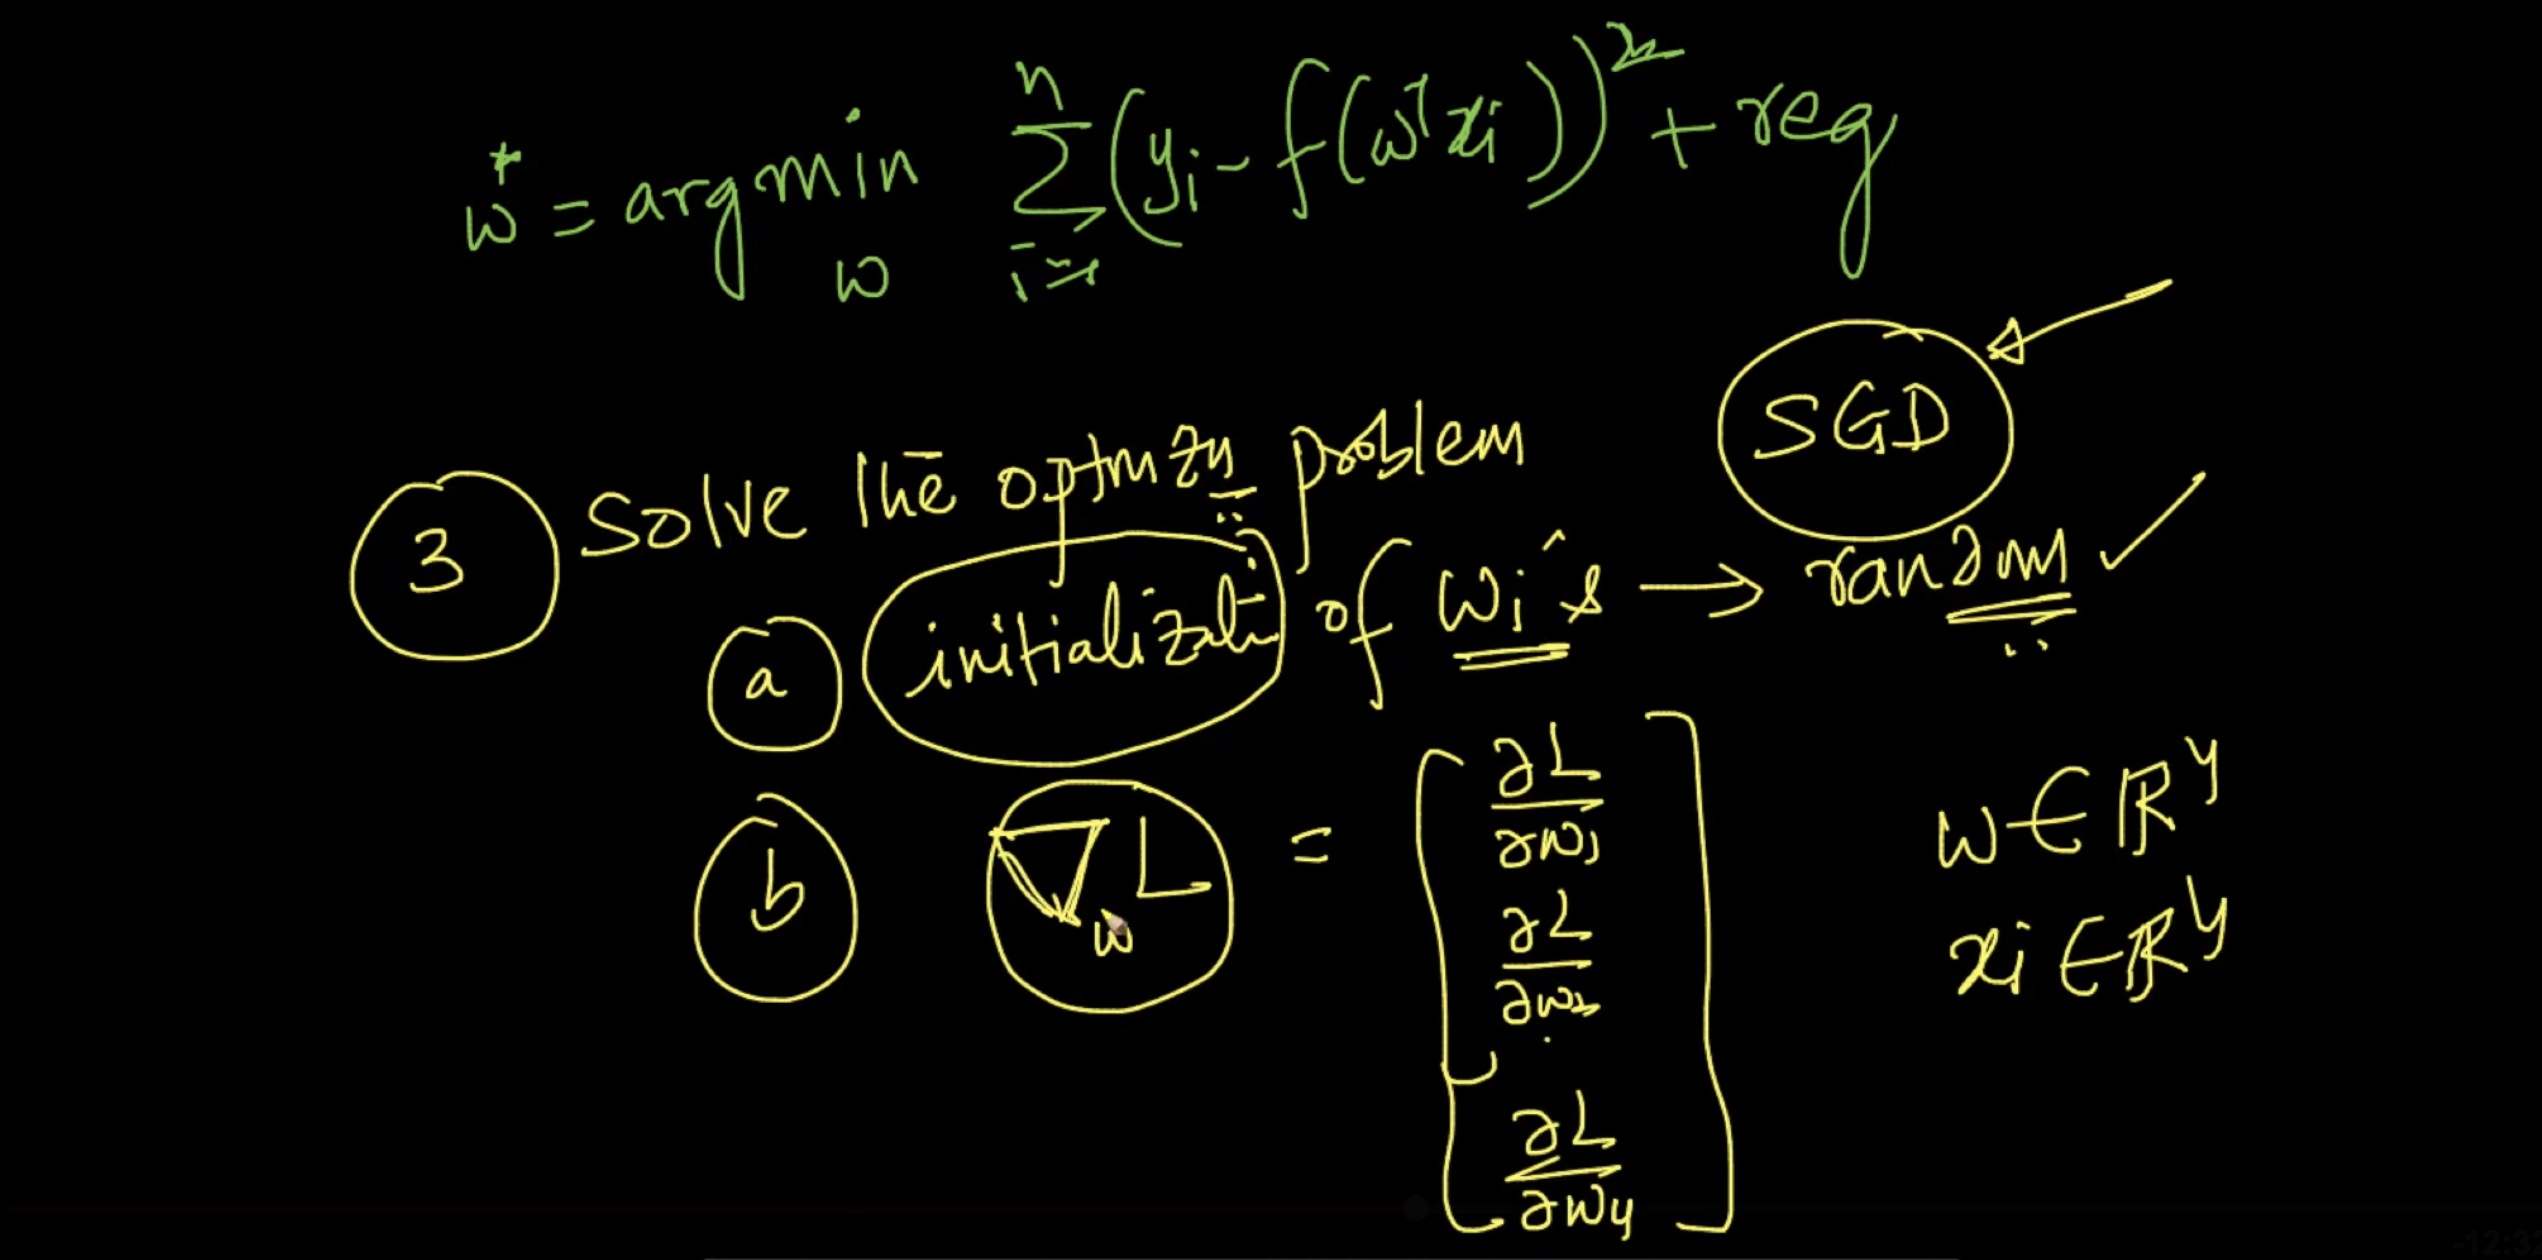 w* = argmin_w Σ_{i=1}^{n} (y_i - f(w^T x_i))^2 + reg
SGD
3 Solve the optmzn problem
a initializati of w_i's → random ✓
b ∇_w L = [ ∂L/∂w_1
∂L/∂w_2
∂L/∂w_4 ]
w ∈ R^4
x_i ∈ R^4